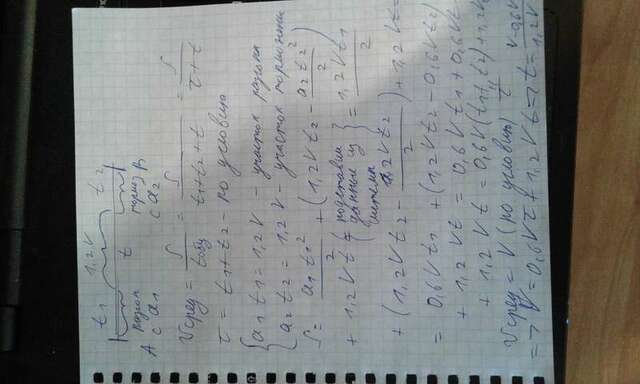 t1 1,2V t2
разгон t тормоз
A с a1 с a2 B
Vсред = S/tобщ = S/(t1+t2+t) = S/(τ+t)
τ = t1+t2 - по условию
{ a1 t1 = 1,2V - участок разгона
a2 t2 = 1,2V - участок торможения
S = a1 t1²/2 + (1,2V t2 - a2 t2²/2)
+ 1,2V t = (подставим данные из системы) = 1,2V t1/2
+ (1,2V t2 - 1,2V t2/2) + 1,2 Vt =
= 0,6V t1 + (1,2V t2 - 0,6V t2)
+ 1,2 Vt = 0,6V t1 + 0,6V t2
+ 1,2 V t = 0,6V (t1+t2) + 1,2V
τ
Vсред = V (по условию)
=> V = 0,6Vτ + 1,2V t => t = V-0,6V/1,2V